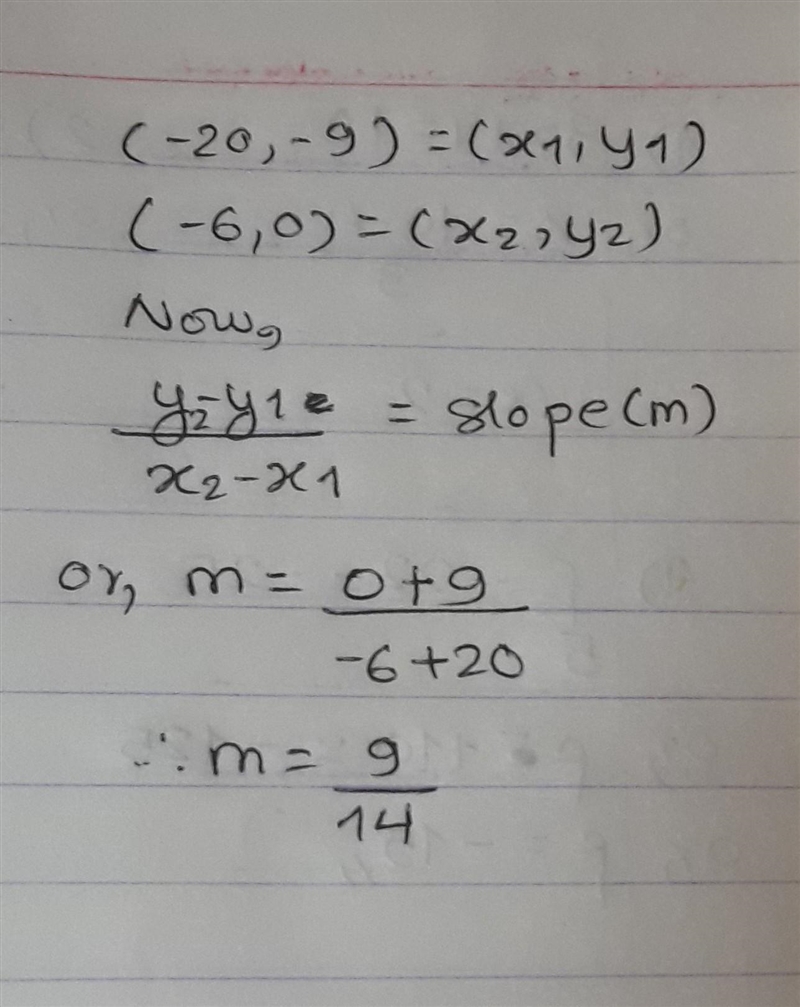 (-20, -9) = (x1, y1)
(-6, 0) = (x2, y2)
Now,
y2-y1 = slope(m)
x2-x1
or, m = 0+9
-6+20
∴ m = 9
14